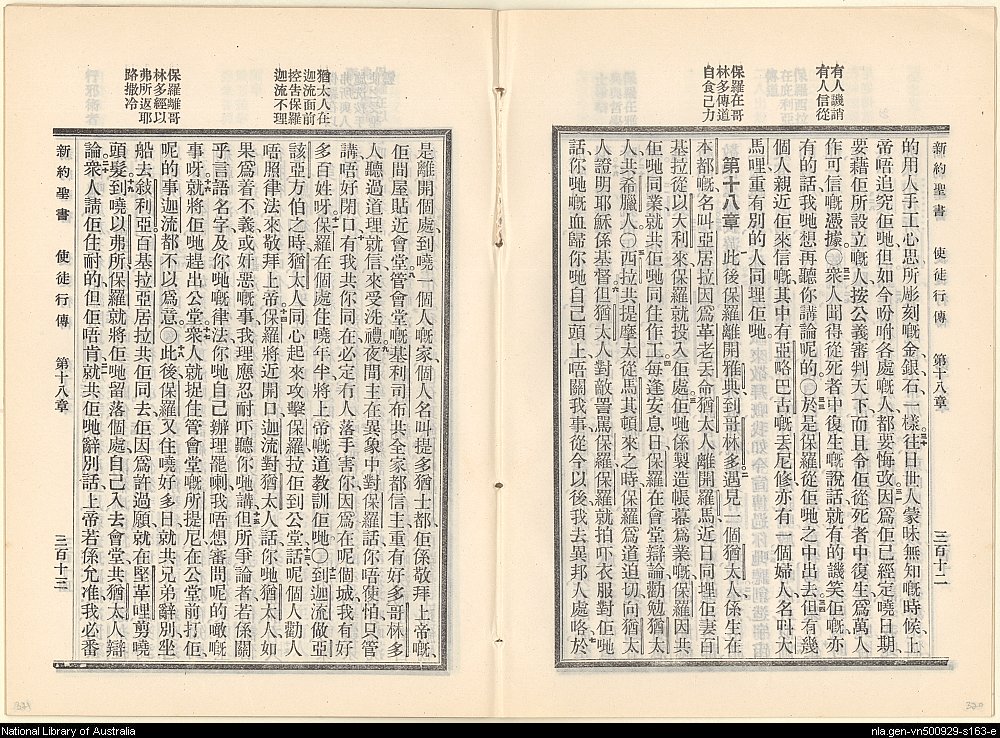 新約聖書 使徒行傳 第十八章 三百十二
有人譏誚
有人信從
保羅在哥
林多傳道
自食己力
的用人手工心思所彫刻嘅金銀石一樣三十往日世人蒙昧無知嘅時候上
帝唔追究佢哋但如今吩咐各處嘅人都要悔改三一因爲佢已經定曉日期
要藉佢所設立嘅人按公義審判天下而且令佢從死者中復生爲萬人
作可信嘅憑據〇三二衆人聞得從死者中復生嘅說話就有的譏笑佢嘅亦
有的話我哋想再聽你講論呢的〇三三於是保羅從佢哋之中出去三四但有幾
個人親近佢來信嘅其中有亞略巴古嘅丟尼修亦有一個婦人名呌大
馬哩重有別的人同埋佢哋
第十八章 一此後保羅離開雅典到哥林多二遇見一個猶太人係生在
本都嘅名叫亞居拉因爲革老丟命猶太人離開羅馬近日同埋佢妻百
基拉從以大利來保羅就投入佢處三佢哋係製造帳幕爲業嘅保羅因共
佢哋同業就共佢哋同住作工四每逢安息日保羅在會堂辯論勸勉猶太
人共希臘人〇五西拉共提摩太從馬其頓來之時保羅爲道迫切向猶太
人證明耶穌係基督六但猶太人對敵詈罵保羅保羅就拍吓衣服對佢哋
話你哋嘅血歸你哋自己頭上唔關我事從今以後我去異邦人處咯七於
新約聖書 使徒行傳 第十八章 三百十三
猶太人在
迦流面前
控吿保羅
迦流不理
保羅離哥
林多經以
弗所返耶
路撒冷
是離開個處到曉一個人嘅家個人名叫提多猶士都佢係敬拜上帝嘅
佢間屋貼近會堂八管會堂嘅基利司布共全家都信主重有好多哥林多
人聽過道理就信來受洗禮九夜間主在異象中對保羅話你唔使怕只管
講唔好閉口十有我共你同在必定有人落手害你因爲在呢個城我有好
多百姓呀十一保羅在個處住曉年半將上帝嘅道教訓佢哋〇十二到迦流做亞
該亞方伯之時猶太人同心起來攻擊保羅拉佢到公堂十三話呢個人勸人
唔照律法來敬拜上帝十四保羅將近開口迦流對猶太人話你哋猶太人如
果係爲着不義或奸惡嘅事我理應忍耐吓聽你哋講十五但所爭論者若係關
乎言語名字及你哋嘅律法你哋自己辦理罷喇我唔想審問呢的嘅
事呀十六就將佢哋趕出公堂十七衆人就捉住管會堂嘅所提尼在公堂前打佢
呢的事迦流都不以爲意〇十八此後保羅又住曉好多日就共兄弟辭別坐
船去敘利亞百基拉亞居拉共佢同去佢因爲許過願就在堅革哩剪曉
頭髮十九到曉以弗所保羅就將佢哋留落個處自己入去會堂共猶太人辯
論二十衆人請佢住耐的但佢唔肯二一就共佢哋辭別話上帝若係允准我必番
National Library of Australia
nla.gen-vn500929-s163-e